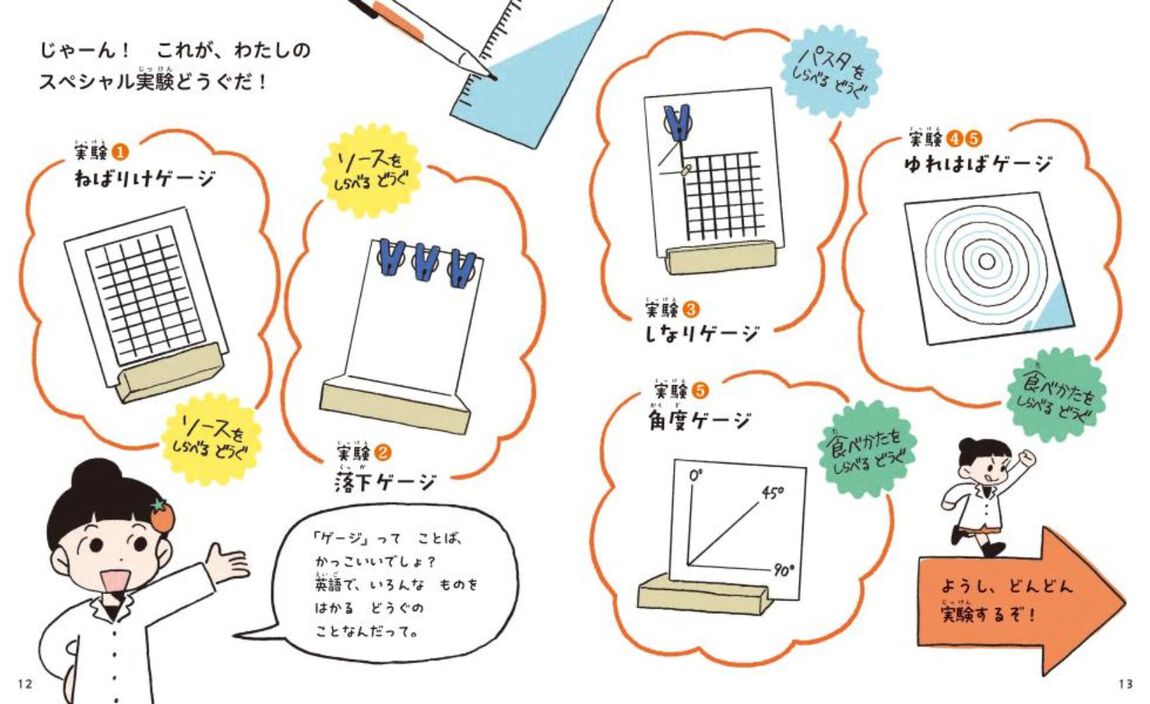 じゃーん！　これが、わたしの
スペシャル実験どうぐだ！
実験❶
ねばりけゲージ
ソースを
しらべる どうぐ
ソースを
しらべる どうぐ
実験❷
落下ゲージ
「ゲージ」って ことば、
かっこいいでしょ？
英語で、いろんな ものを
はかる どうぐの
ことなんだって。
12
パスタを
しらべる どうぐ
実験❸
しなりゲージ
実験❹❺
ゆれはばゲージ
食べかたを
しらべる どうぐ
実験❺
角度ゲージ
食べかたを
しらべる どうぐ
0°
45°
90°
ようし、どんどん
実験するぞ！
13